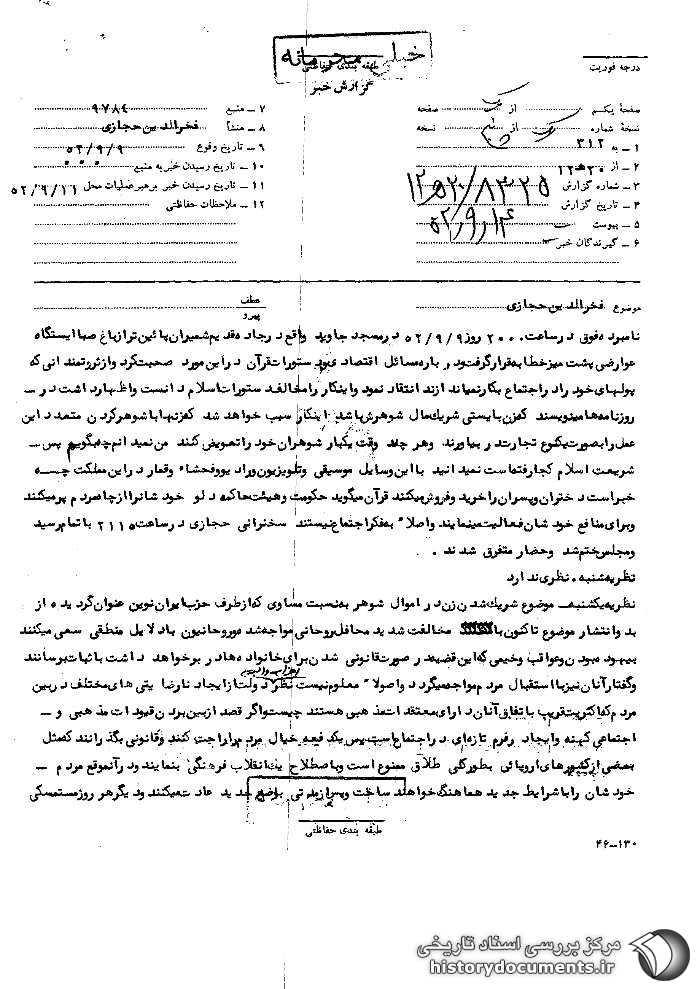 خیلی محرمانه
طبقه بندی حفاظتی
گزارش خبر
درجه فوریت
صفحهٔ یکم از یک صفحه
نسخهٔ شماره یک از پنج نسخه
۱ ـ به ۳۱۲
۲ ـ از ۲۰ ه‍ ۱۲
۳ ـ شماره گزارش ۸۳۲۵/ ۲۰ ه‍ ۱۲
۴ ـ تاریخ گزارش ۵۲/۹/۱۴
۵ ـ پیوست
۶ ـ گیرندگان خبر
۷ ـ منبع ۹۷۸۴
۸ ـ منشأ فخرالدین حجازی
۹ ـ تاریخ وقوع ۵۲/۹/۹
۱۰ ـ تاریخ رسیدن خبر به منبع
۱۱ ـ تاریخ رسیدن خبر برهبر عملیات محل ۵۲/۹/۱۱
۱۲ ـ ملاحظات حفاظتی
موضوع فخرالدین حجازی
عطف
پیرو
نامبرده فوق در ساعت ۲۰۰۰ روز ۵۲/۹/۹ در مسجد جاوید واقع در جاده قدیم شمیران پائین تر از باغ صبا ایستگاه
عوارضی پشت میز خطابه قرار گرفت و درباره مسائل اقتصادی و دستورات قرآن در این مورد صحبت کرد و از ثروتمندانی که
پولهای خود را در اجتماع بکار نمیاندازند انتقاد نمود و اینکار را مخالف دستورات اسلام دانست و اظهار داشت در ـ
روزنامه ها مینویسند که زن بایستی شریک مال شوهرش باشد اینکار سبب خواهد شد که زنها با شوهر کردن متعدد این
عمل را بصورت یکنوع تجارت در بیاورند و هر چند وقت یکبار شوهران خود را تعویض کنند من نمیدانم چه بگویم پس ـ
شریعت اسلام کجا رفته است نمیدانید با این وسایل موسیقی و تلویزیون و رادیو و فحشاء و قمار در این مملکت چه
خبر است دختران و پسران را خرید و فروش میکنند قرآن میگوید حکومت و هیئت حاکمه دلو خودشان را از چاه مردم پر میکنند
و برای منافع خودشان فعالیت مینمایند و اصلاً بفکر اجتماع نیستند سخنرانی حجازی در ساعت ۲۱۱۵ باتمام رسید
و مجلس ختم شد و حضار متفرق شدند .
نظریه شنبه . نظری ندارد
نظریه یکشنبه ـ موضوع شریک شدن زن در اموال شوهر به نسبت مساوی که از طرف حزب ایران نوین عنوان گردیده از
بدو انتشار موضوع تاکنون با مخالفت شدید محافل روحانی مواجه شده و روحانیون با دلایل منطقی سعی میکنند
بیهوده بودن و عواقب وخیمی که این قضیه در صورت قانونی شدن برای خانواده ها در بر خواهد داشت باثبات برسانند
و گفتار آنان نیز با استقبال مردم مواجه میگردد و اصولاً معلوم نیست نظر دولت از ایجاد نارضایتی های مختلف در بین
مردم که اکثریت قریب باتفاق آنان دارای معتقدات مذهبی هستند چیست و اگر قصد از بین بردن قیودات مذهبی و ـ
اجتماعی کهنه و ایجاد رفرم تازه ای در اجتماع است پس یکدفعه خیال مردم را راحت کنند و قانونی بگذرانند که مثل
بعضی از کشورهای اروپائی بطور کلی طلاق ممنوع است و باصطلاح یک انقلاب فرهنگی بنمایند و در آنموقع مردم ـ
خودشان را با شرایط جدید هماهنگ خواهند ساخت و پس از مدتی بوضع جدید عادت میکنند و دیگر هر روز مستمسکی
طبقه بندی حفاظتی
۴۶-۱۳۰
مرکز بررسی اسناد تاریخی
historydocuments.ir